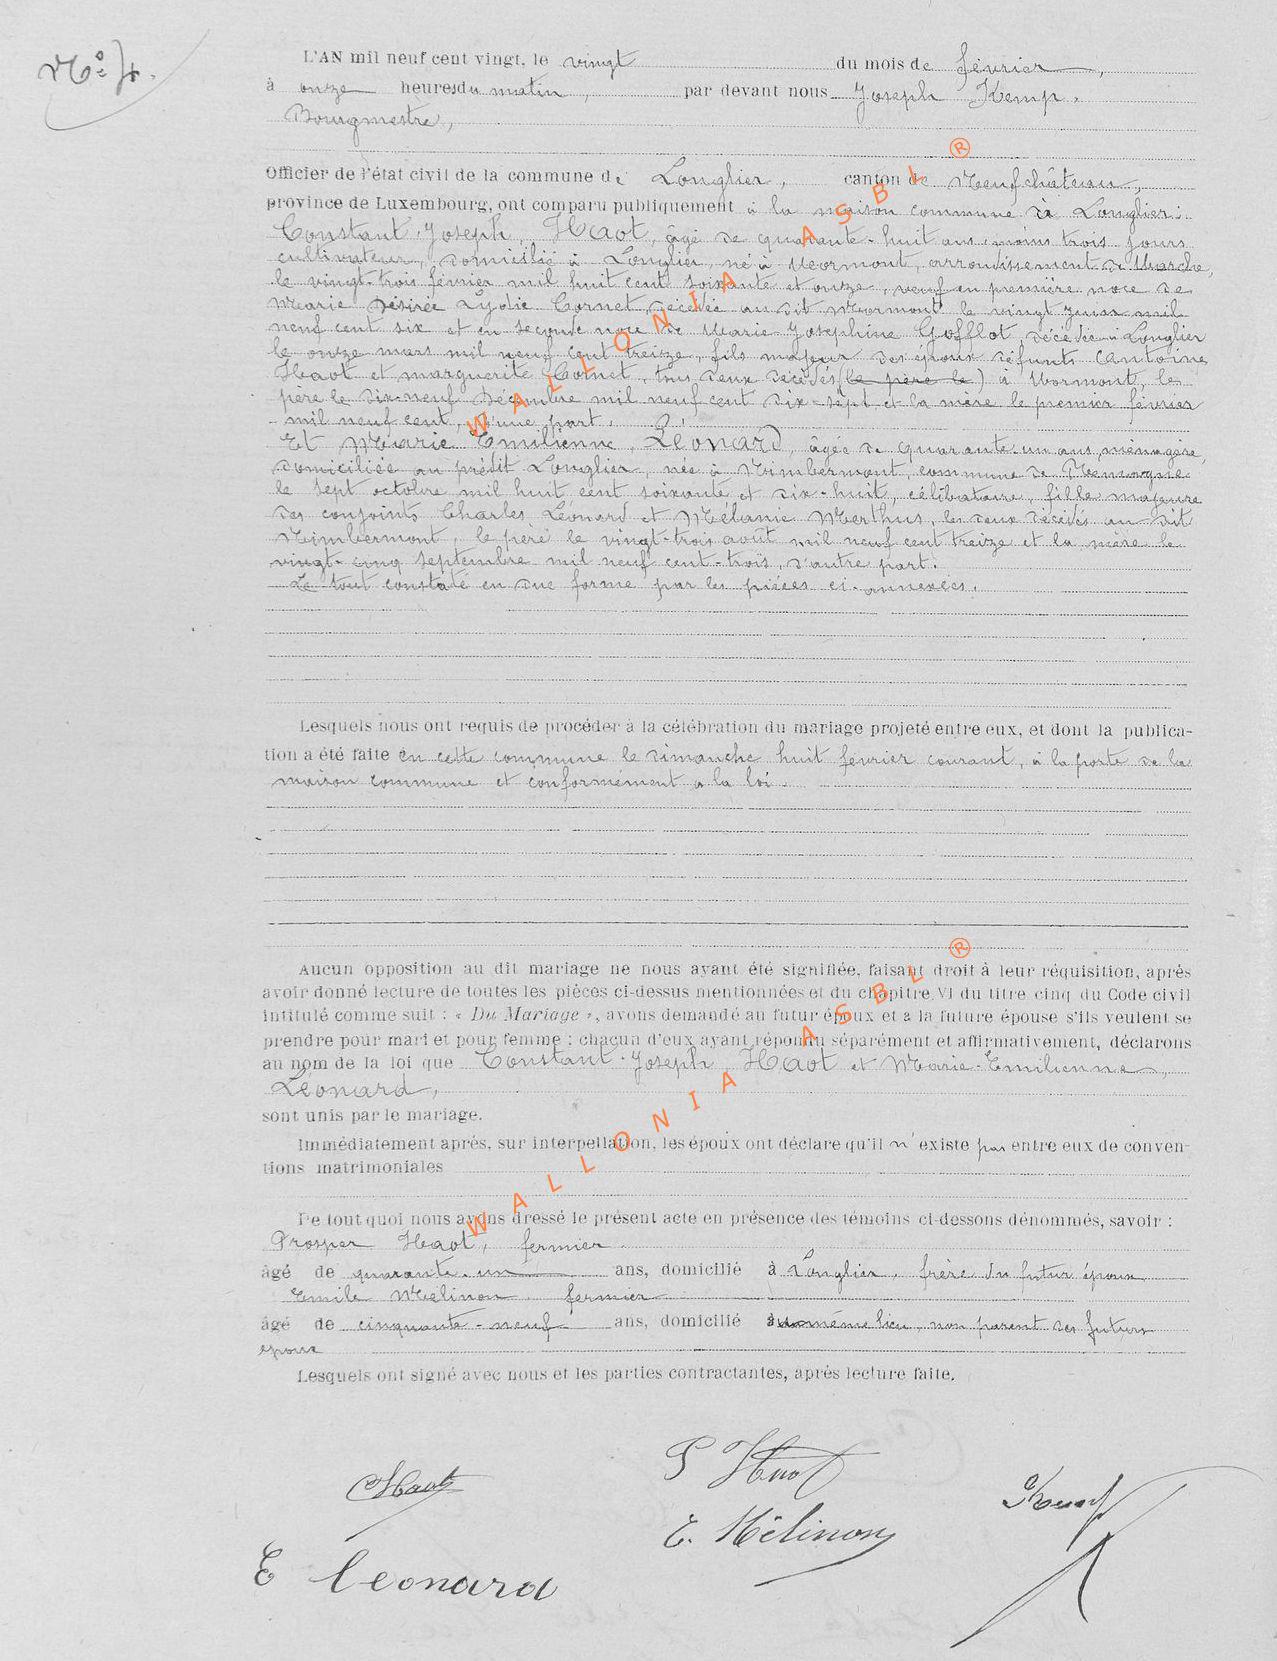 N° 4.
L'AN mil neuf cent vingt, le vingt du mois de février,
à onze heures du matin, par devant nous Joseph Kemp,
Bourgmestre,
Officier de l'état civil de la commune de Longlier, canton de Neufchâteau,
province de Luxembourg, ont comparu publiquement à la maison commune à Longlier:
Constant-Joseph, Haot, âgé de quarante-huit ans moins trois jours
cultivateur, domicilié à Longlier, né à Wormont, arrondissement de Marche,
le vingt-trois février mil huit cent soixante et onze, veuf en première noce de
Marie Désirée Lydie Cornet, décédée au dit Wormont le vingt juin mil
neuf cent six et en seconde noce de Marie-Josephine Gofflot, décédée à Longlier
le onze mars mil neuf cent treize, fils majeur des époux défunts Antoine
Haot et Marguerite Cornet, tous deux décédés (le père le) à Wormont, le
père le dix-neuf décembre mil neuf cent dix-sept et la mère le premier février
mil neuf cent, d'une part.
Et Marie Emilienne, Léonard, âgée de quarante-un ans, ménagère,
domiciliée au prédit Longlier, née à Nimbermont, commune de Remagne
le sept octobre mil huit cent soixante et dix-huit, célibataire, fille majeure
des conjoints Charles Léonard et Mélanie Merthus, les deux décédés au dit
Nimbermont, le père le vingt-trois août mil neuf cent treize et la mère le
vingt-cinq septembre mil neuf cent-trois, d'autre part.
Le tout constaté en due forme par les pièces ci-annexées.
Lesquels nous ont requis de procéder à la célébration du mariage projeté entre eux, et dont la publica-
tion a été faite en cette commune le dimanche huit février courant, à la porte de la
maison commune et conformément à la loi.
Aucun opposition au dit mariage ne nous ayant été signifiée, faisant droit à leur réquisition, après
avoir donné lecture de toutes les pièces ci-dessus mentionnées et du chapitre VI du titre cinq du Code civil
intitulé comme suit : « Du Mariage », avons demandé au futur époux et a la future épouse s'ils veulent se
prendre pour mari et pour femme : chacun d'eux ayant répondu séparément et affirmativement, déclarons
au nom de la loi que Constant-Joseph Haot et Marie-Emilienne,
Léonard,
sont unis par le mariage.
Immédiatement après, sur interpellation, les époux ont déclare qu'il n'existe pas entre eux de conven-
tions matrimoniales
De tout quoi nous avons dressé le présent acte en présence des témoins ci-dessons dénommés, savoir :
Prosper Haot, fermier
âgé de quarante-un ans, domicilié à Longlier, frère du futur époux
Emile Mélinon fermier
âgé de cinquante-neuf ans, domicilié au même lieu, non parent des futurs
époux
Lesquels ont signé avec nous et les parties contractantes, après lecture faite.
C Haot
P Haot
Kemp
E. Mélinon
E Leonard
WALLONIA ASBL ®
WALLONIA ASBL ®